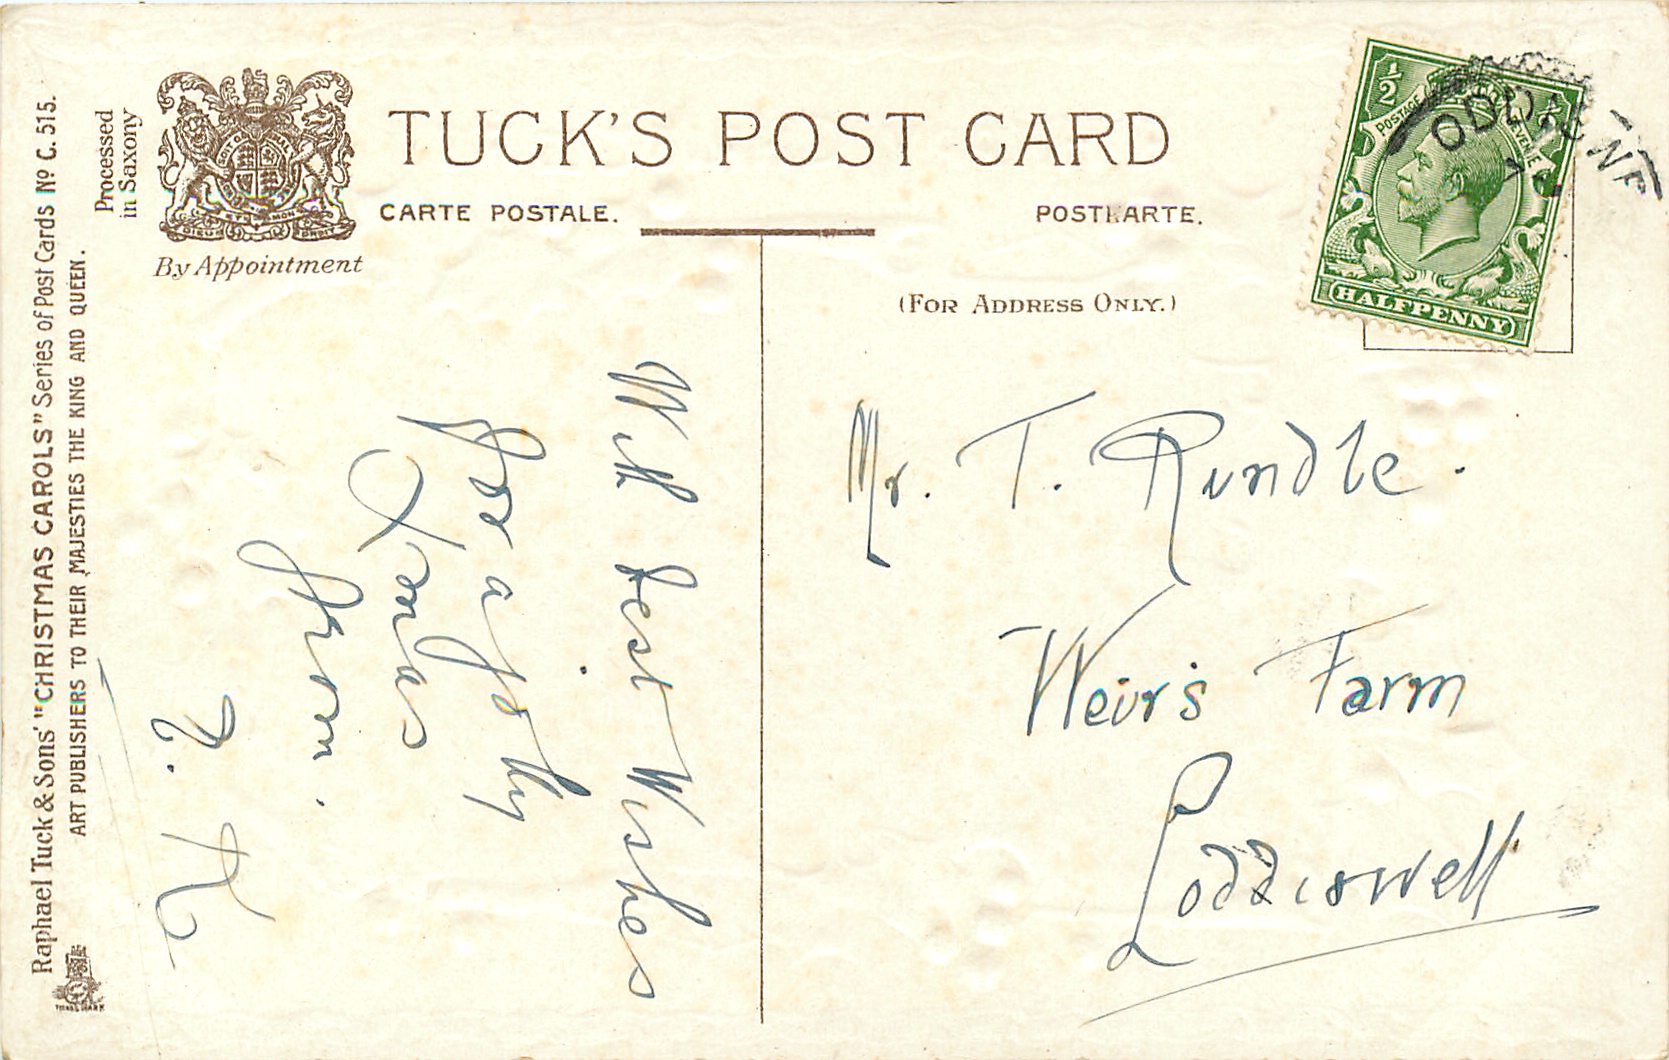 TUCK'S POST CARD
CARTE POSTALE.
POSTKARTE.
(FOR ADDRESS ONLY.)
By Appointment
Processed
in Saxony
Raphael Tuck & Sons' "CHRISTMAS CAROLS" Series of Post Cards No C. 515.
ART PUBLISHERS TO THEIR MAJESTIES THE KING AND QUEEN.
TRADE MARK
DIEU ET MON DROIT
½
POSTAGE REVENUE
HALFPENNY
With best Wishes
for a jolly
Xmas
from.
Mr. T. Rundle.
Weirs Farm
Loddiswell